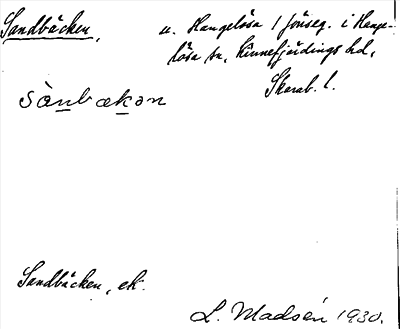 Sandbäcken, u. Hangelösa 1 förseg. i Hange-
lösa sn, Kinnefjärdings hd,
Skarab. l.
sànbækən
Sandbäcken, ek.
L. Madsén 1930.